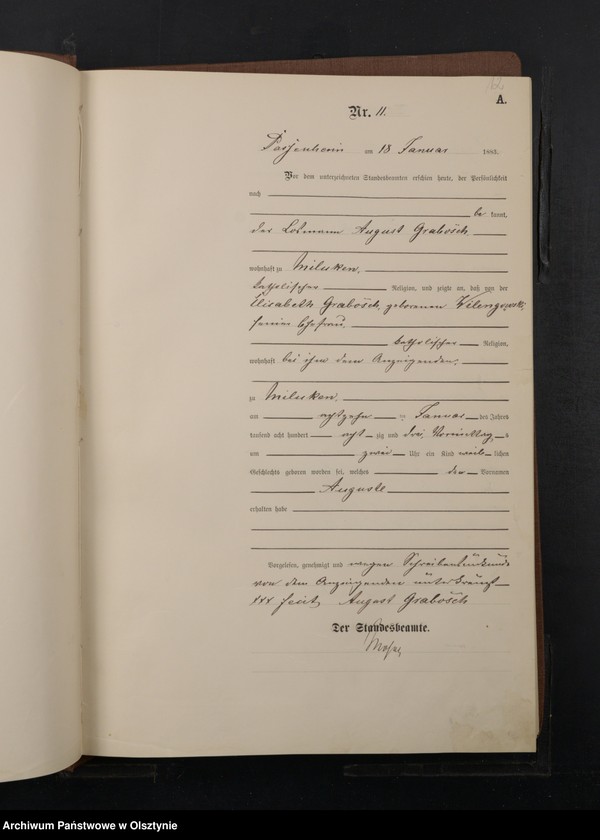 12
A.
Nr. 11.
Passenheim am 18 Januar 1883.
Vor dem unterzeichneten Standesbeamten erschien heute, der Persönlichkeit
nach
be kannt,
der Losmann August Grabosch
wohnhaft zu Milucken,
katholischer Religion, und zeigte an, daß von der
Elisabeth Grabosch, geborenen
seiner Ehefrau,
katholischer Religion,
wohnhaft bei ihm dem Anzeigenden,
zu Milucken,
am achtzehn ten Januar des Jahres
tausend acht hundert acht zig und drei, Vormittag s
um zwei Uhr ein Kind weib lichen
Geschlechts geboren worden sei, welches den Vornamen
Auguste
erhalten habe
Vorgelesen, genehmigt und wegen Schreibensunkunde
von dem Anzeigenden unterkreuzt
+++ August Grabosch
Der Standesbeamte.
Archiwum Państwowe w Olsztynie